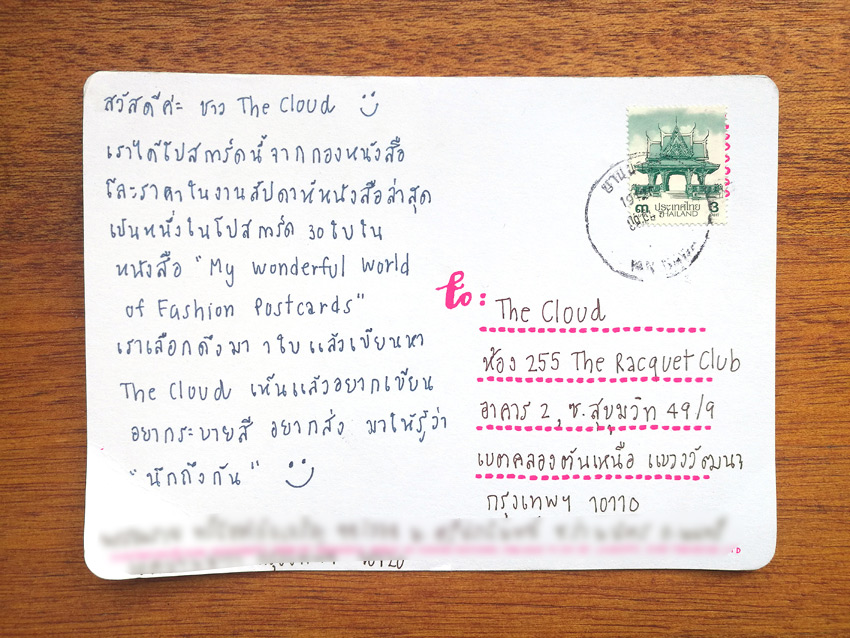 สวัสดีค่ะ ชาว The Cloud
เราได้โปสการ์ดนี้จากกองหนังสือ
โละราคาในงานสัปดาห์หนังสือล่าสุด
เป็นหนึ่งในโปสการ์ด 30 ใบใน
หนังสือ "My wonderful world
of Fashion Postcards"
เราเลือกดึงมา 1 ใบแล้วเขียนหา
The Cloud เห็นแล้วอยากเขียน
อยากระบายสี อยากส่ง มาให้รู้ว่า
"นึกถึงกัน"
๓ ประเทศไทย 3
THAILAND
to: The Cloud
ห้อง 255 The Racquet Club
อาคาร 2, ซ.สุขุมวิท 49/9
เขตคลองตันเหนือ แขวงวัฒนา
กรุงเทพฯ 10110